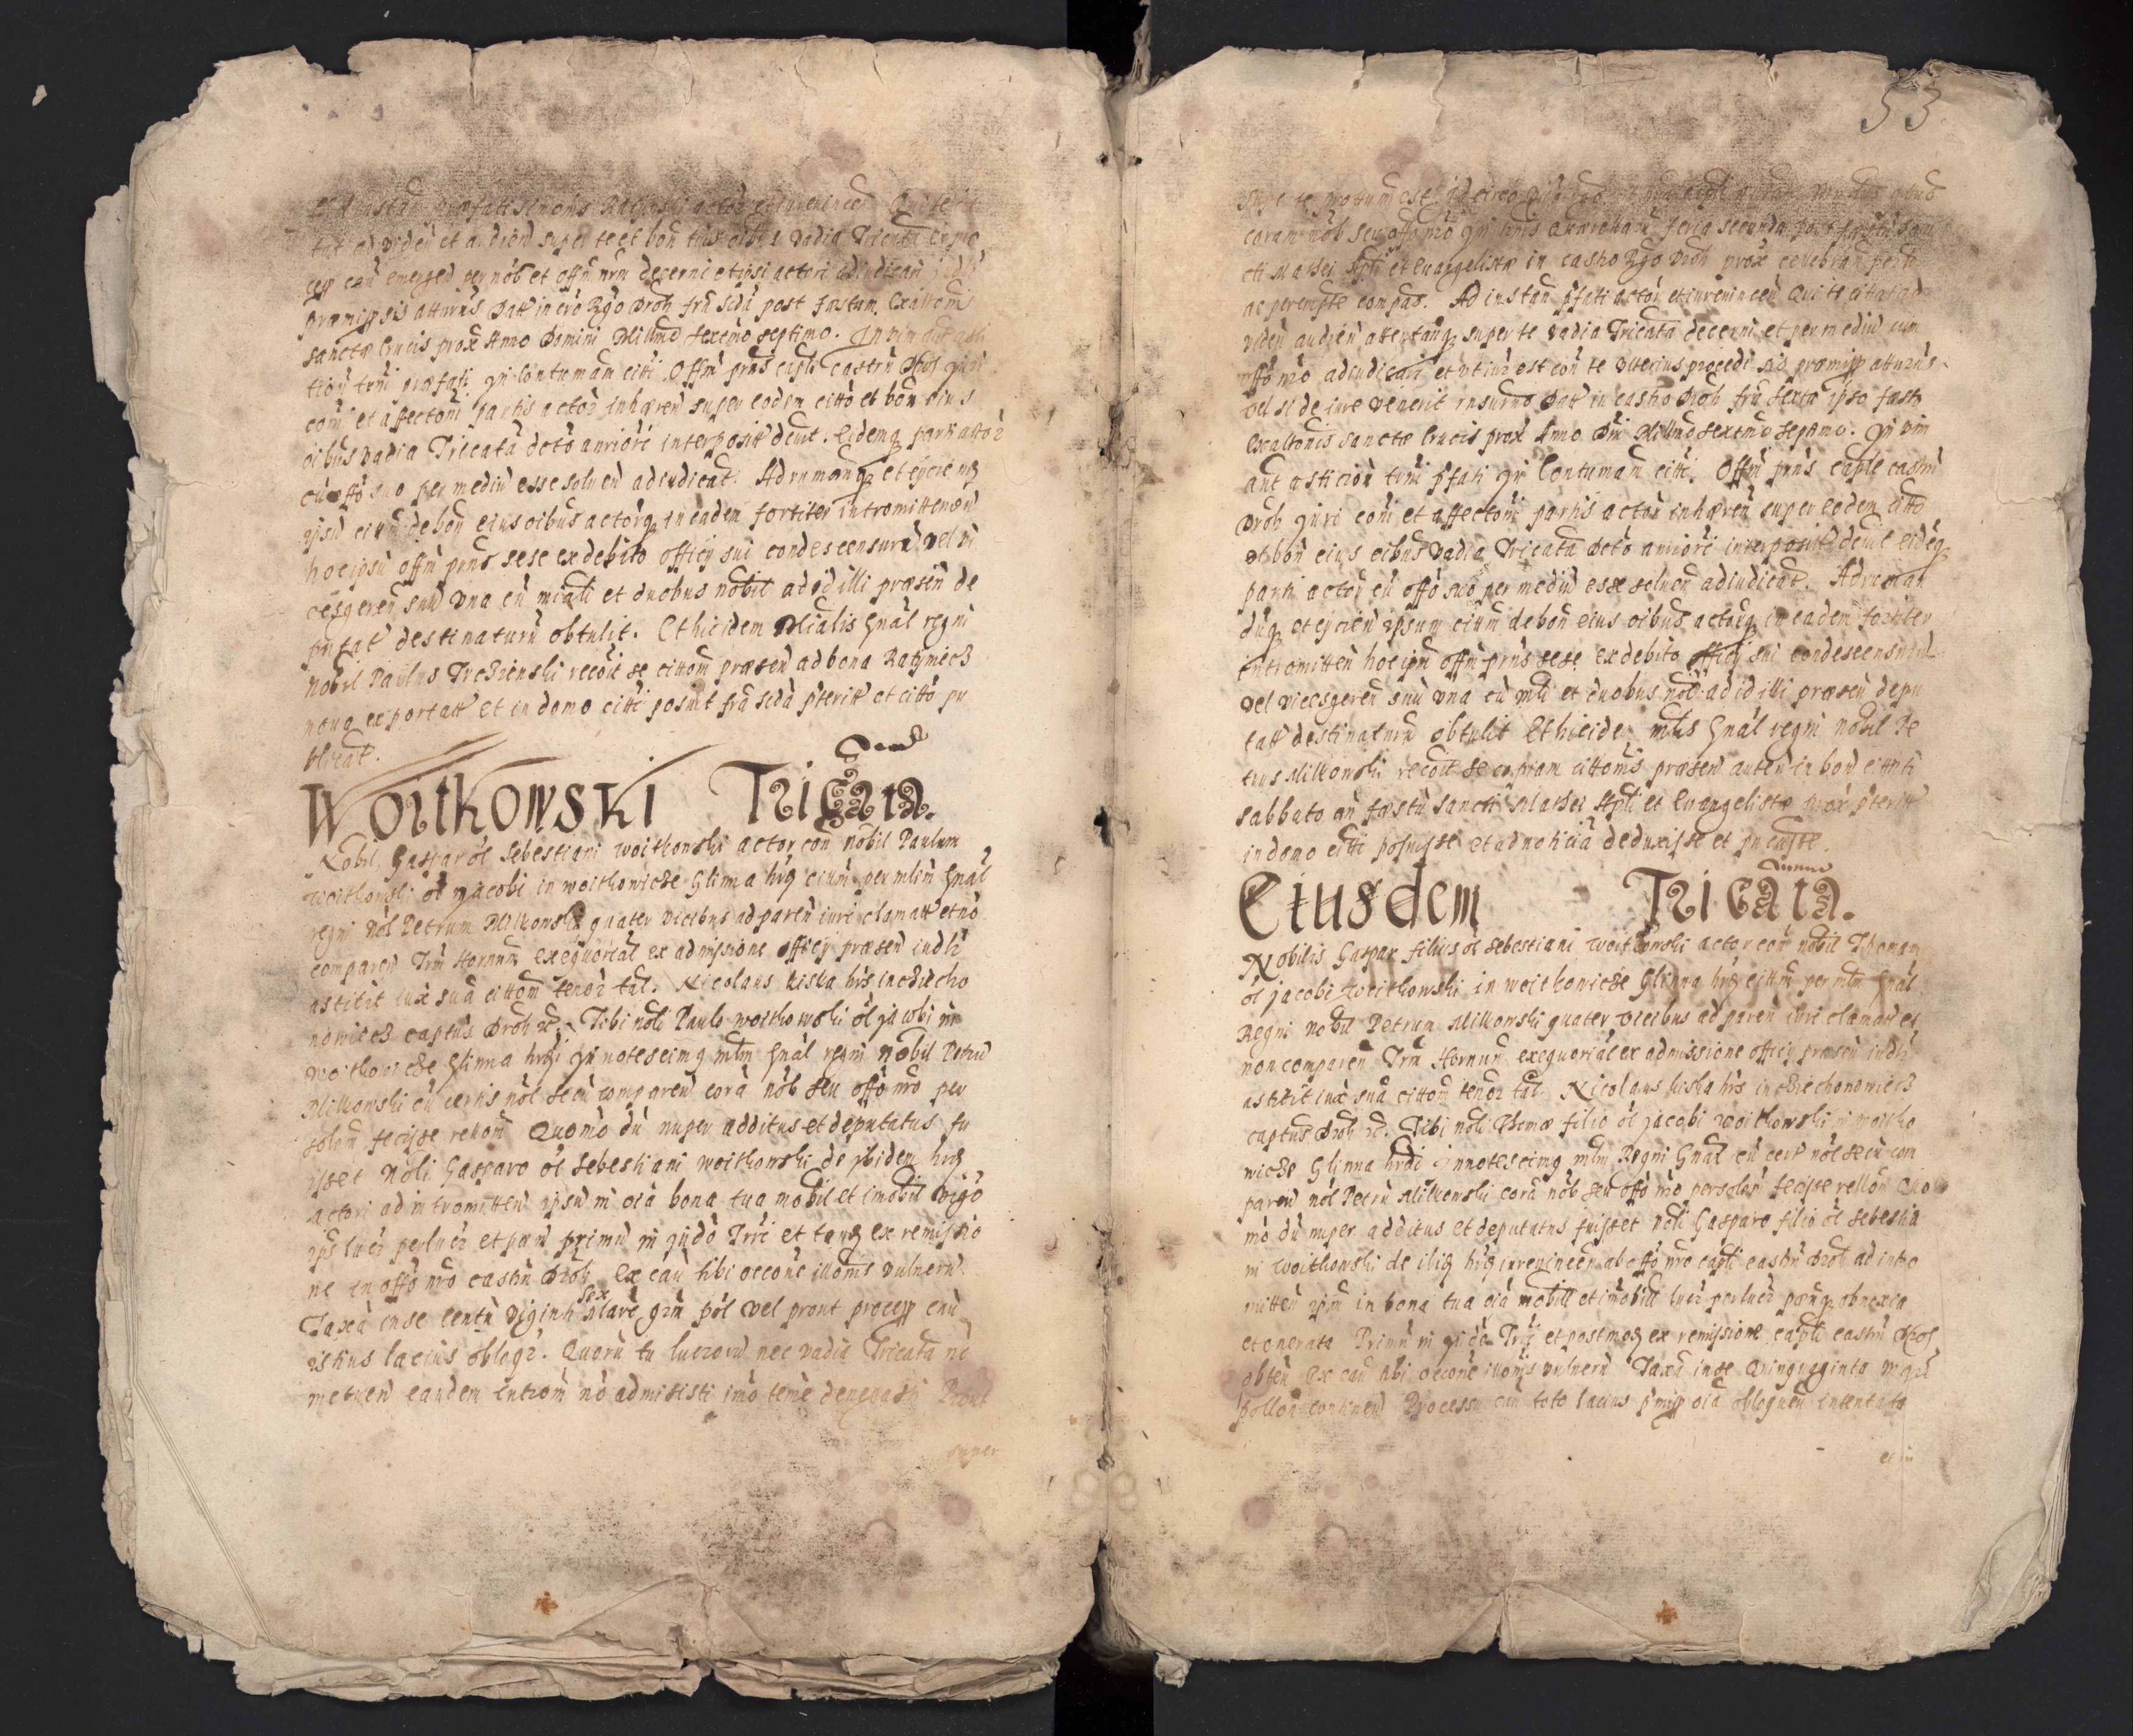 Ad instan præfati Simonis Ratinski actor et iurevincen Qui te cit
tat ad viden et audien super te et bon tuis oibus vadia Tricata
cess cau emergen per nob et offm nrm decerni et ipsi actori adiudicari
præmissis atturus Datt in cro Rgo Droh fra scda post festum Exaltonis
sanctæ Crucis prox Anno Domini Millmo sexcmo septimo. In vim
trni præfati In Contumam citti Offm prns captle castrn Droh Juri
coni et affectoni partis actor inhæren super eodem citto et bon eius
oibus vadia Tricata dcto anriori interposit devit. Eidemq parti actor
cu offo suo per mediu esse soluen adiudicat. Adrumanq et eycien
ipsu citum de bon eius oibus actorq in eadem fortiter intromitten
hoc ipsu offm prns sese ex debito officy sui condescensuru vel vi
cesgeren suu vna cu miali et duobus nobil ad id illi præsen de
putat destinaturu obtulit. Et hic idem Mlialis Gnal regni
Nobil Paulus Trebienski recoit se cittom præsen ad bona Ratyniecz
nova exportatt et in domo citti posuit fra scda pteritt et citto pu
blicat.
Woitkowski Tricata.
Nobil. Gaspar ol Sebestiani woitkowski actor con nobil Paulum
woitkowski ol Jacobi in woitkowicze Glinna hrq citum per mlm Gnal
regni nol Petrum Milkowski quater vicibus ad paren iuri clamatt et no
comparen Trm Hornum exequorial ex admissione officy præsen indh
astitit iux sua cittom tenor tal. Nicolaus Kiska hrs in cziecho
nowiecz captus Droh etc. Tibi noli Paulo woitkowski ol Jacobi in
woitkowicze Glinna hrdi Innotescimq mlm Gnal regni nobil Petru
Milkowski cu certis nol secu comparen cora nob seu offo nro per
solen fecisse rellom Quomo du nuper additus et deputatus fu
isset Noli Gasparo ol Sebestiani woitkowski de ibidem hrq
actori ad intromitten ipsu in oia bona tua mobil et imobil vigo
ips lucr perlucr et pæn primu in judo Trri et tanq ex remissio
ne in offo nro castrn Droh Ex cau tibi occone illoms vulneru
Taxa in se Centu viginti sex Mare grn pol vel prout process cau
istius lacius obloqr. Quoru tu lucroru nec vadia Tricata no
metuen eandem introm no admisisti imo teme denegasti Prout
super
53
super te prottum est. Idcirco
coram nob seu offo nro In trnis Quærellaru feria secunda post festum San
cti Mathei Apli et Evangelistæ in castro Rgo Droh prox celebran peritt
ac perempte compas. Ad instan pfati actor et iurevincen Qui te citat ad
viden audien attentanq super te vadia Tricata decerni et per mediu cum
offo nro adiudicari et vt iur est con te vlterius procedi Ad præmiss atturus
vel si de iure venerit insurus Datt in castro Droh fra sexta ipso festo
Exaltonis sanctæ Crucis prox Anno Dni Millmo sexcmo septimo. In vim
ant asticion trni pfati In Contumam citti. Offm prns captle castrn
Droh Juri coni et affectoni partis actor inhæren super eodem citto
et bon eius oibus vadia Tricata dcto anriori interposit devit eideq
parti actor cu offo suo per mediu esse soluen adiudicat. Adruman
duq et eycien ipsum citum de bon eius oibus actorq in eadem fortiter
intromitten hoc ipm offm prns sese ex debito officy sui condescensuru
vel vicesgeren suu vna cu mli et duobus nol ad id illi præsen depu
tatt destinaturu obtulit Et hic ide mlis Gnal regni nobil Pe
trus Milkowski recoit se copiam cittoms præsen auten in bon citti
sabbato an festu Sancti Mathei Apli et Evangelistæ prox pteritt
in domo citti posuisse et ad noticia deduxisse et pucasse.
Eiusdem Tricata.
Nobilis Gaspar filius ol Sebestiani woitkowski actor con nobil Thomam
ol Jacobi woitkowski in woitkowicze Glinna hrq cittm per mlm Gnal
Regni nobil Petrum Milkowski quater vicibus ad paren iuri clamatt et
non comparen Trm Hornum exequorial ex admissione officy præsen indh
astitit iux sua cittom tenor tal. Nicolaus Kiska hrs in cziechonowiecz
captus Droh etc. Tibi noli Thomæ filio ol Jacobi woitkowski in woitko
wicze Glinna hrdi Innotescimq mlm Regni Gnal cu cert nol secu com
paren nol Petru Milkowski cora nob seu offo nro persolen fecisse rellom Quo
mo du nuper additus et deputatus fuisset noli Gasparo filio ol Sebestia
ni woitkowski de iliq hrq iurevincen ab offo nro captli castrn Droh ad intro
mitten ipm in bona tua oia mobill et imobill lucr perlucr pænq obnoxia
et onerata Primu in judo Trri et postmoq ex remissione captli castrn Droh
obten Ex cau tibi occone illoms vulneru Taxa in se Quinquaginta m grn
pollon continen Processu cau toto lacius pmiss oia obloquen intentata
et in